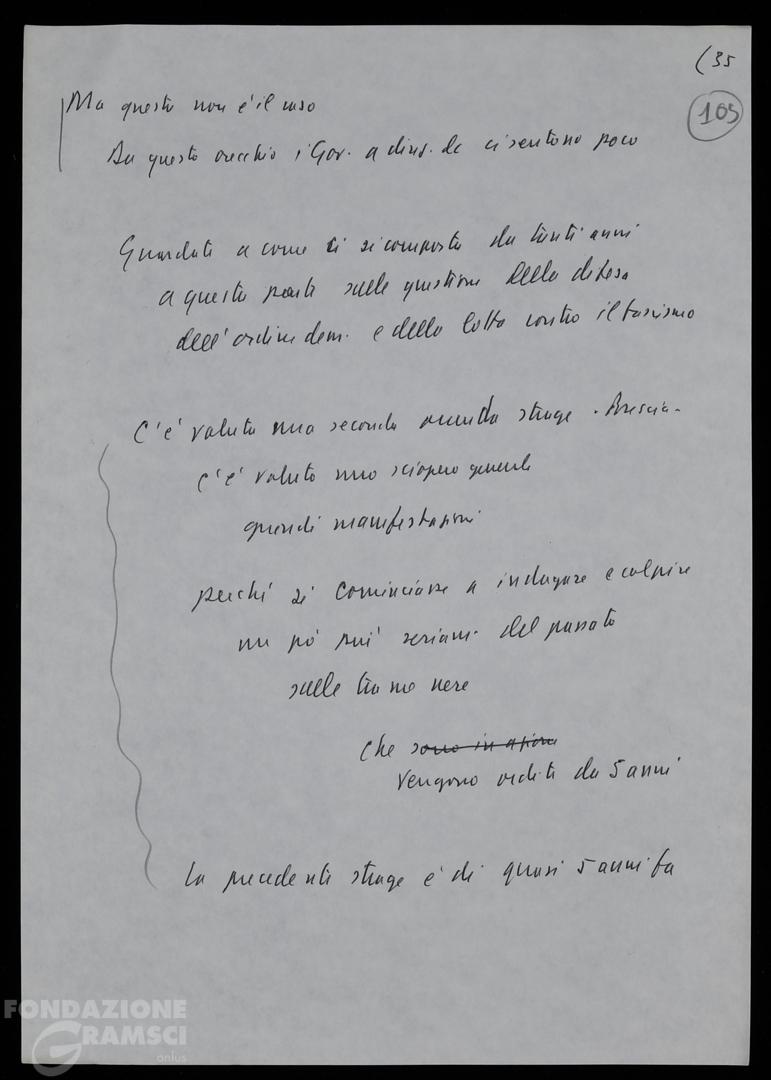 (35
105
Ma questo non è il caso
Da questo orecchio i Gov. a direz. dc ci sentono poco
Guardate a come ci si comporta da tanti anni
a questa parte sulle questione della difesa
dell'ordine dem. e della lotta contro il fascismo
C'è voluta una seconda orrenda strage - Brescia -
c'è voluto uno sciopero generale
grandi manifestazioni
perché si cominciasse a indagare e colpire
un pò più seriam. del passato
sulle trame nere
che sono in azione
vengono ordite da 5 anni
La precedente strage è di quasi 5 anni fa
FONDAZIONE
GRAMSCI
onlus